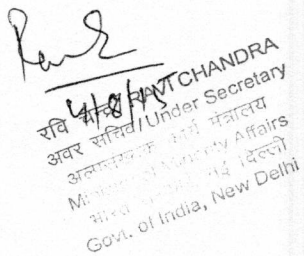 4/8/15
रवि चन्द्रा/RAVI CHANDRA
अवर सचिव/Under Secretary
अल्पसंख्यक कार्य मंत्रालय
Ministry of Minority Affairs
भारत सरकार, नई दिल्ली
Govt. of India, New Delhi